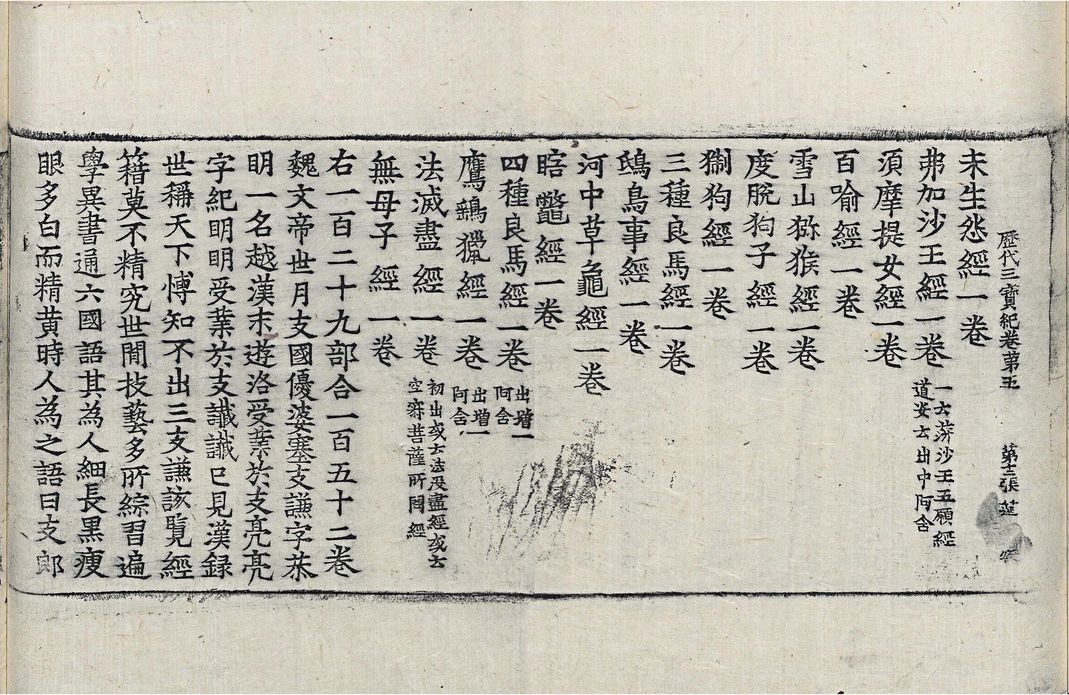 歷代三寶紀卷第五 第三張
未生怨經一卷
弗加沙王經一卷 一云蓱沙王五願經
道安云出中阿含
須摩提女經一卷
百喻經一卷
雪山獼猴經一卷
度脫狗子經一卷
猘狗經一卷
三種良馬經一卷
鴟鳥事經一卷
河中草龜經一卷
瞎鼈經一卷
四種良馬經一卷 出增一
阿含
鷹鷂獵經一卷 出增一
阿含
法滅盡經一卷 初出或云法没盡經或云
空寂菩薩所問經
無母子經一卷
右一百二十九部合一百五十二卷
魏文帝世月支國優婆塞支謙字恭
明一名越漢末遊洛受業於支亮亮
字紀明明受業於支讖讖巳見漢録
世稱天下愽知不出三支謙該覽經
籍莫不精究世間技藝多所綜習遍
學異書通六國語其為人細長黒瘦
眼多白而精黄時人為之語曰支郎